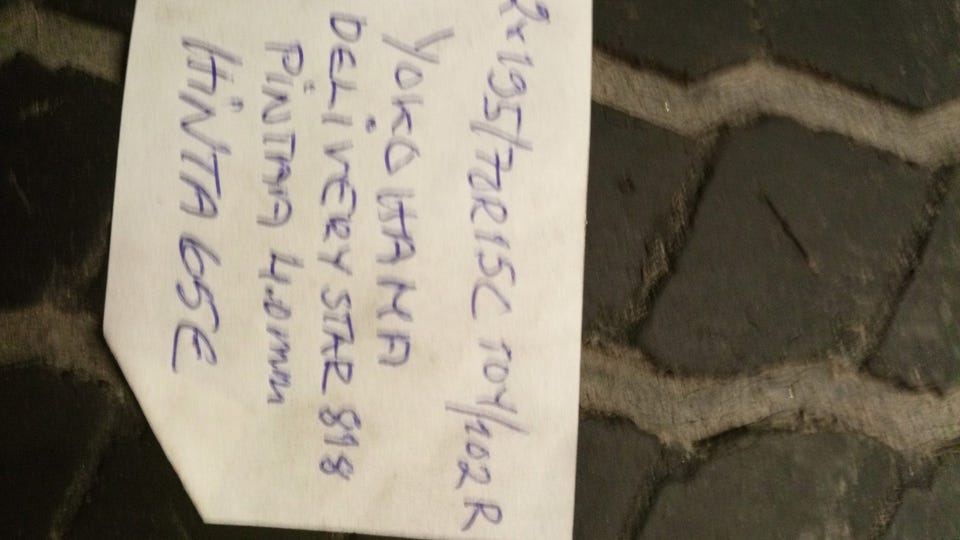 2x195/70R15C 104/102R
YOKOHAMA
DELIVERY STAR 818
PINTAA 4.0mm
HINTA 65E